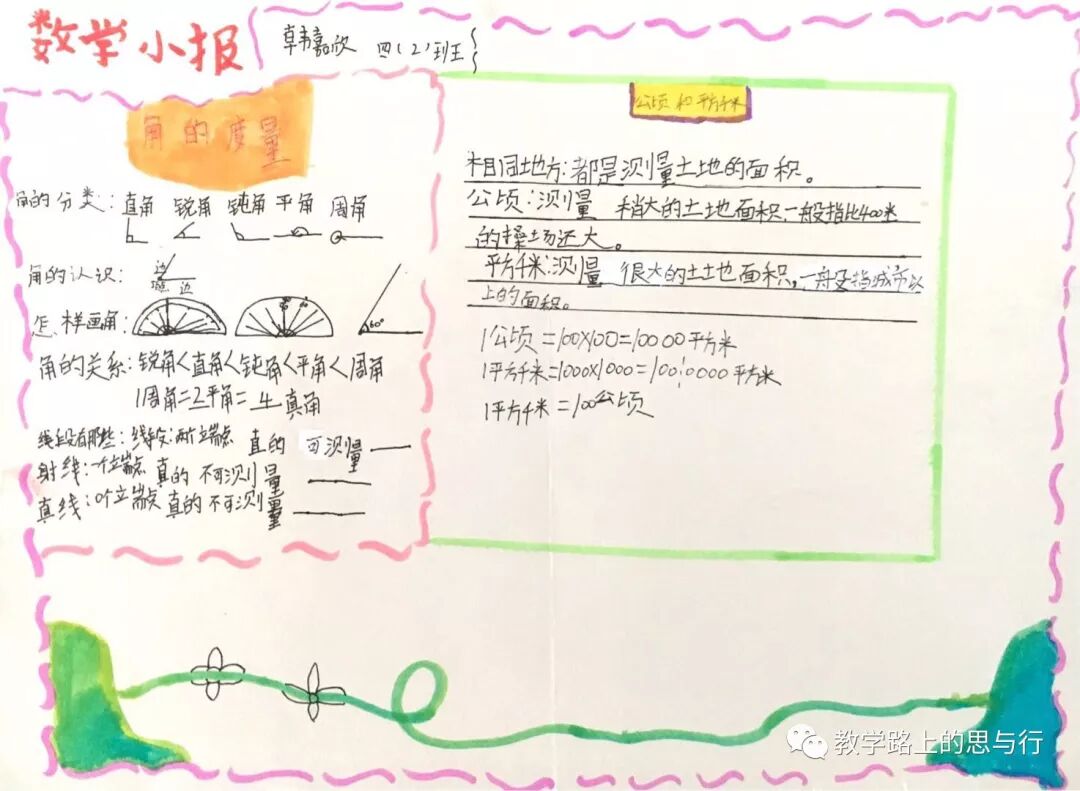 数学小报
韩嘉欣 四(2)班
角的度量
角的分类: 直角 锐角 钝角 平角 周角
角的认识: 边
边
怎样画角:
60°
角的关系: 锐角<直角<钝角<平角<周角
1周角=2平角=4直角
线段有那些: 线段: 两个端点 直的 可测量
射线: 一个端点 直的 不可测量
直线: 0个端点 直的 不可测量
公顷和平方千米
相同地方: 都是测量土地的面积。
公顷: 测量 稍大的土地面积,一般指比400米
的操场还大。
平方千米: 测量 很大的土地面积,一般指城市以
上的面积。
1公顷=100×100=10000平方米
1平方千米=1000×1000=1000000平方米
1平方千米=100公顷
教学路上的思与行